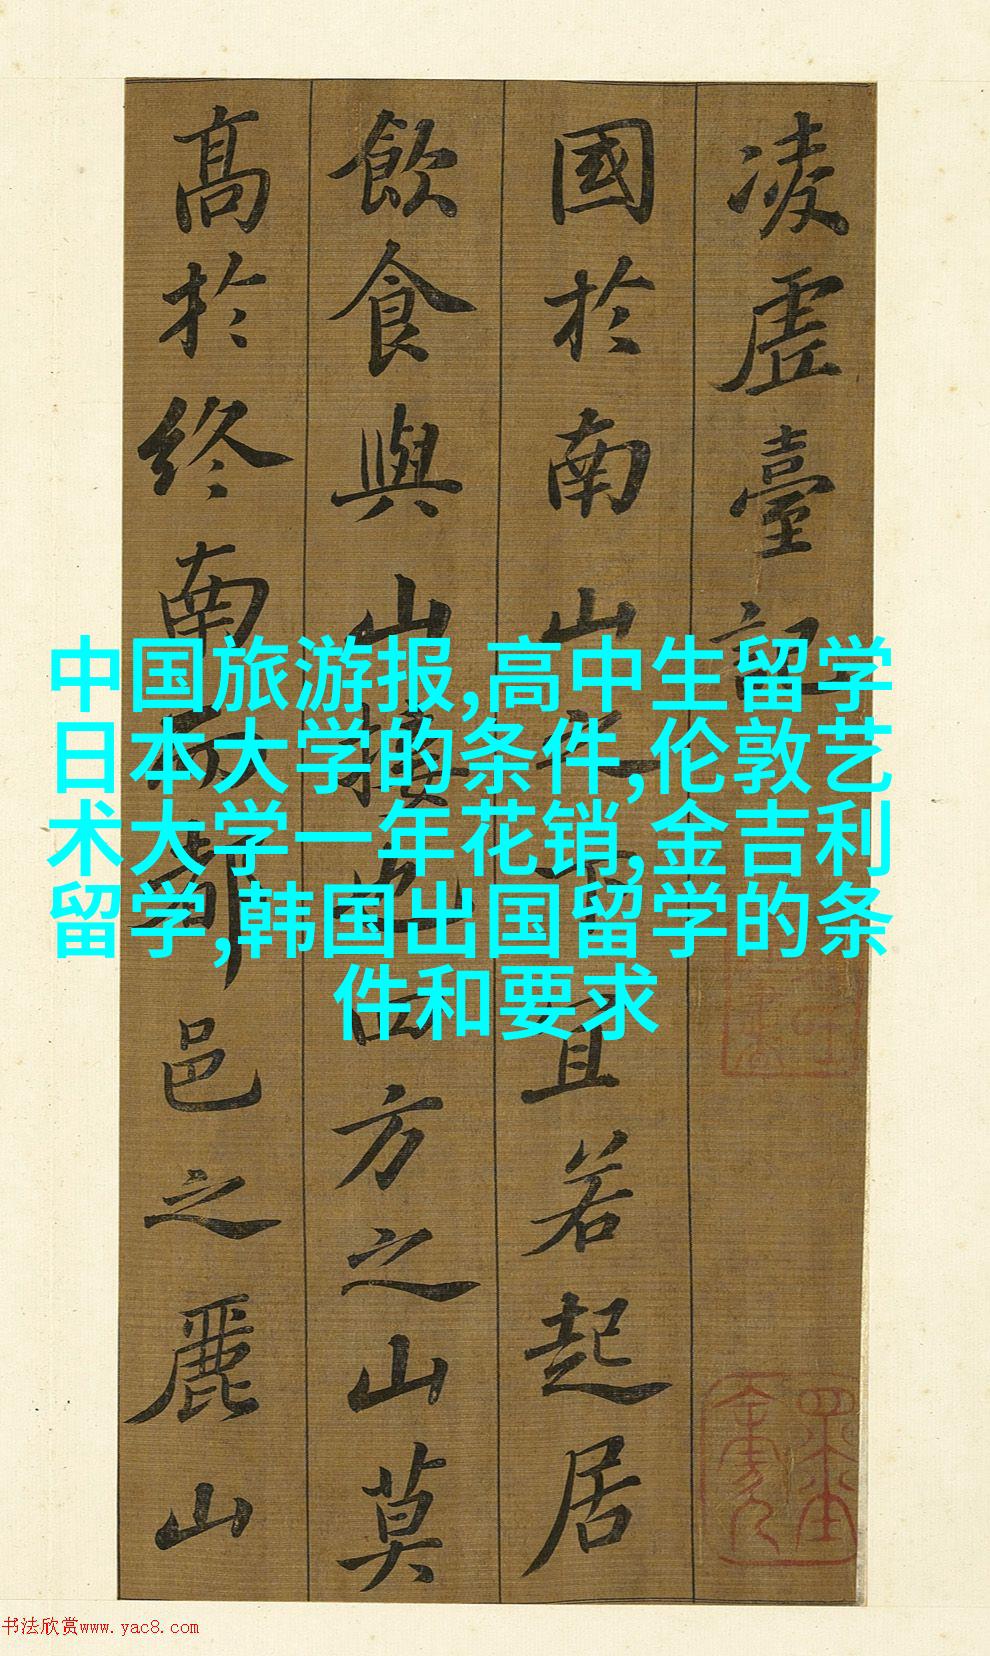 凌虛臺記
國於南山之下宜若起居
飲食與山接也四方之山莫
高於終南而都邑之麗山
中国旅游报,高中生留学
日本大学的条件,伦敦艺
术大学一年花销,金吉利
留学,韩国出国留学的条
件和要求
书法欣赏www.yac8.com